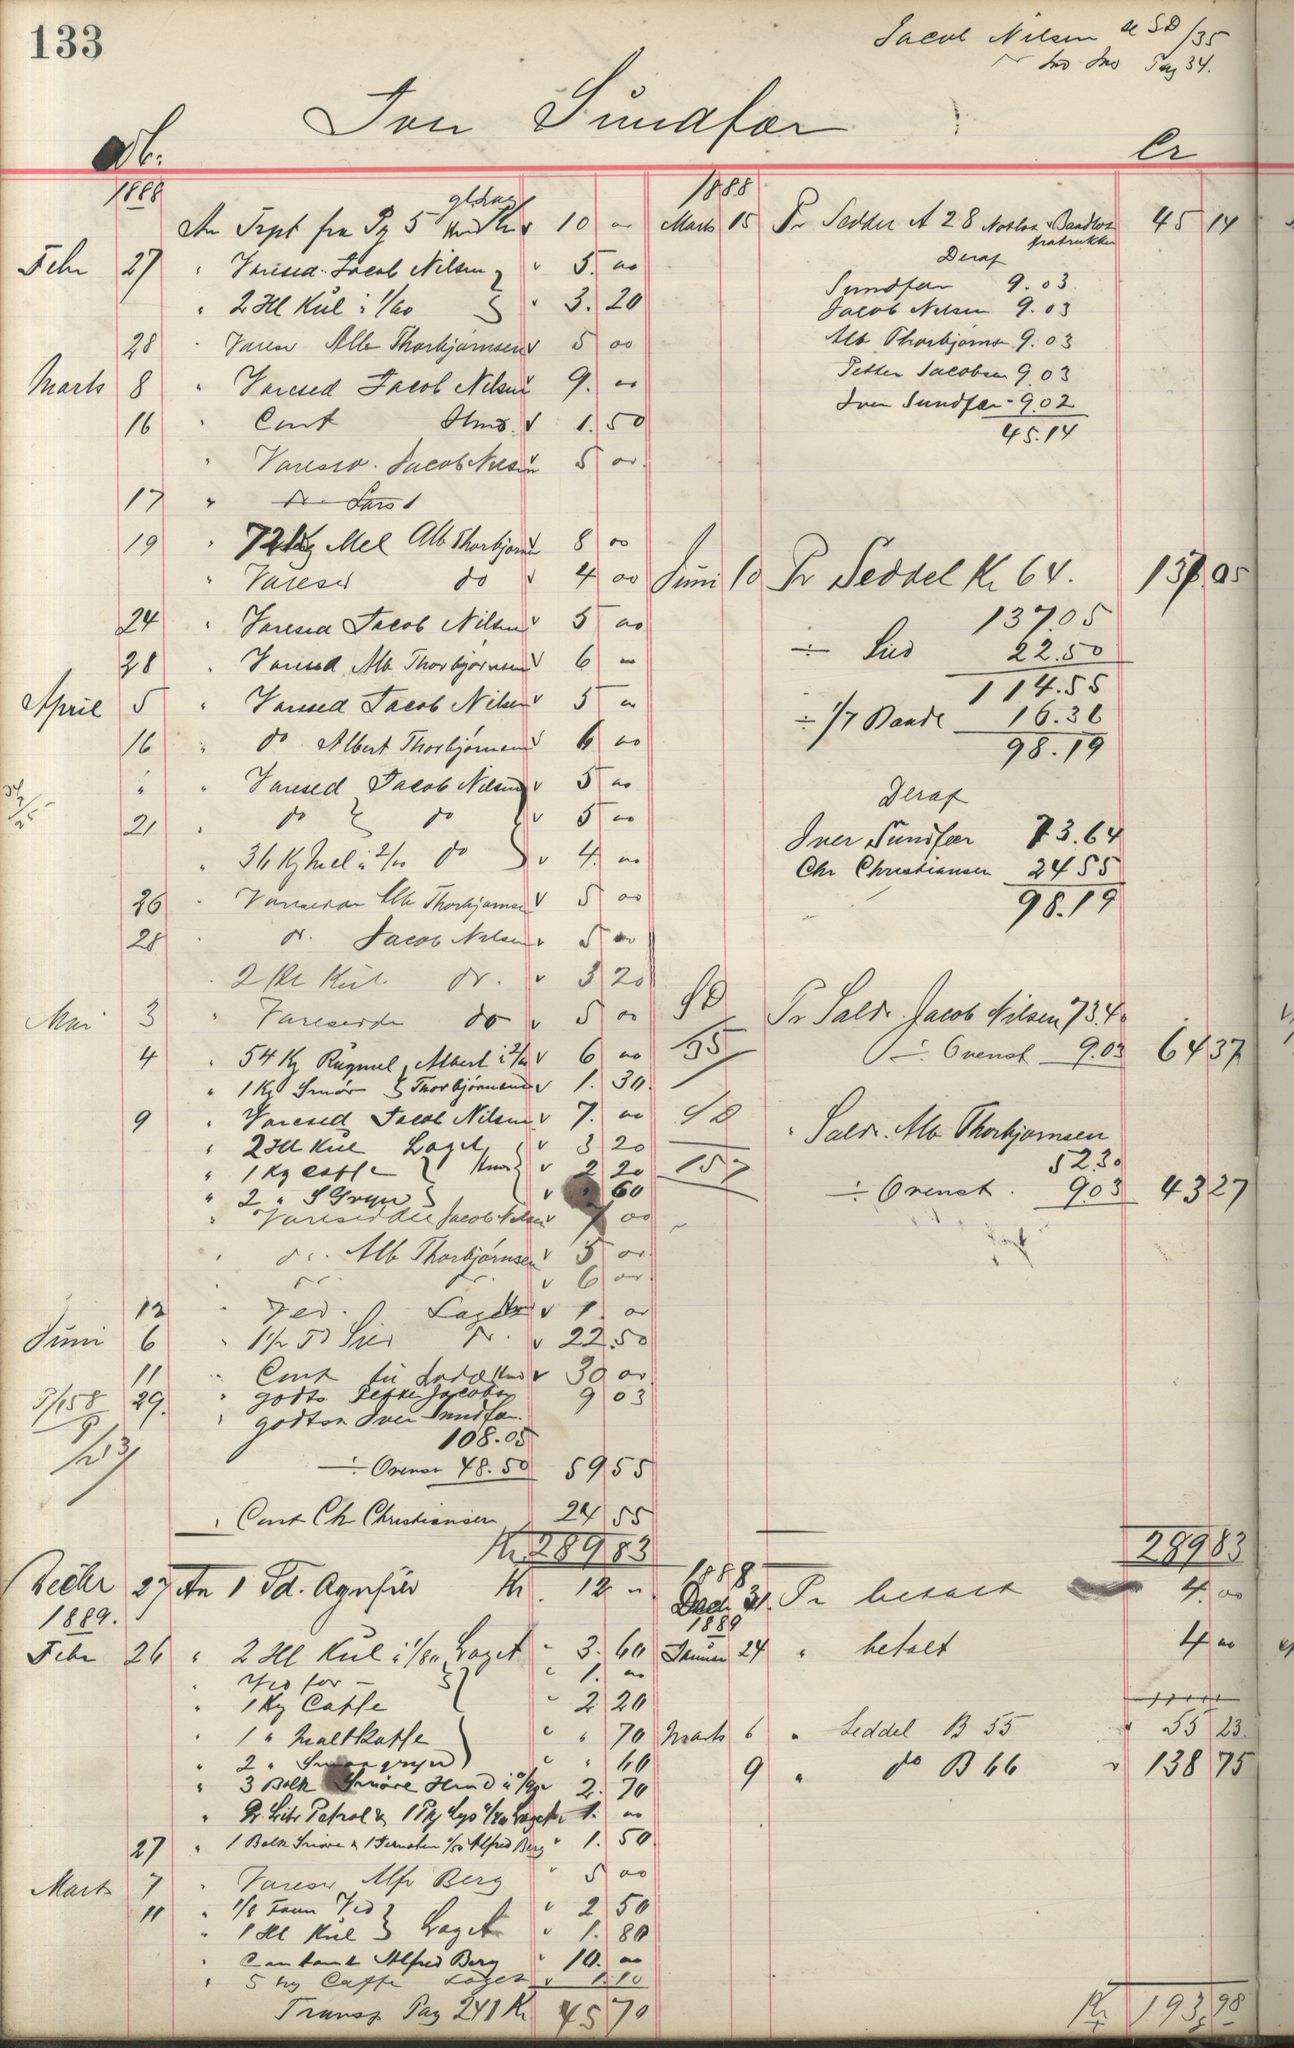 133
Jacob Nilsen SD/35
Pag 34.
Iver Sundfær
Cr
1888
An Trpt fra Pg 5 10 "
Febr 27 " Varesed. Jacob Nilsen " 5. 00
" 2 Hl Kul à 1/60 " 3. 20
28 " Varesed Alb Thorbjørnsen 5 00
Marts 8 " Varesed Jacob Nilsen 9. 00
16 " Cont Hmd. 1. 50
" Varesed. Jacob Nilsen 5 00
17 "
19 " 72 Kg Mel Alb Thorbjørnsen 8 00
" Varesed do 4 00
24 " Varesed Jacob Nilsen 5 00
28 " Varesed Alb Thorbjørnsen 6 00
April 5 " Varesed Jacob Nilsen 5 00
16 " do Albert Thorbjørnsen 6 00
" " Varesed Jacob Nilsen 5 00
21 " do do 5 00
" 36 Kg Mel à 2/00 do 4. 00
26 " Varesedel Alb Thorbjørnsen 5 00
28 " do. Jacob Nilsen 5 00
" 2 Hl Kul do. 3 20
Mai 3 " Varesedel do 5 00
4 " 54 Kg Rugmel Albert 6 00
" 1 Kg Smør Thorbjørnsen 1. 30
9 " Varesed Jacob Nilsen 7. 00
" 2 Hl Kul Laget 3 20
" 1 Kg Caffe 2 20
" 2 " S Gryn " 60
" Vareseddel Jacob Nilsen 7 00
" do. Alb Thorbjørnsen 5 00
" 6 00
12 " Ved. Laget 1. 00
Juni 6 " 22. 50
11 " Cont 30 00
29. " godts Petter Jacobsen 9 03
" godtsn Iver Sundfær
108.05
÷ Ovenst 48.50 59 55
" Cont Ch Christiansen 24 55
Kr. 289 83
1888
Marts 15 Pr Seddel A 28 45 14
Deraf
Sundfær 9.03
Jacob Nilsen 9.03
Alb Thorbjørns 9.03
Petter Jacobsen 9.03
Iver Sundfær 9.02
45.14
Juni 10 Pr Seddel Kr 64. 137. 05
137.05
÷ Sild 22.50
114.55
÷ 1/7 Baade 16.36
98.19
Deraf
Iver Sundfær 73.64
Chr Christiansen 24 55
98.19
SD 35 Pr Saldo Jacob Nilsen 73.40
÷ Ovenst 9.03 64 37
SD 157 " Saldo. Alb Thorbjørnsen
52.30
÷ Ovenst. 9.03 43 27
289 83
Decbr 27 An 1 Td. Agnsild Kr. 12 "
1889.
Febr 26 " 2 Hl Kul à 1/80 Laget " 3. 60
" Ved for " 1. 00
" 1 Kg Caffe " 2 20
" 1 " Maltkaffe " " 70
" 2 " " " 60
" 3 Bolk Smøre Hmd " 2. 70
" 2 Litr Petrol & 1 Pk Lys Laget 1. 00
27 " 1 Bolk Smøre Alfred Berg " 1. 50
Marts 7 " Varesed Alfr Berg " 5 00
11 " 1/8 Favn Ved " 2 50
" 1 Hl Kul Laget " 1. 80
" Contant Alfred Berg " 10. 00
" 5 Kg Caffe Laget 1.10
Transp Pag 241 Kr 45 70
1888
Decb 31. Pr betalt 4. 00
1889
Januar 24 " betalt 4 00
Marts 6 " Seddel B 55 " 55 23.
9 " do B 66 " 138 75
Kr 193 98